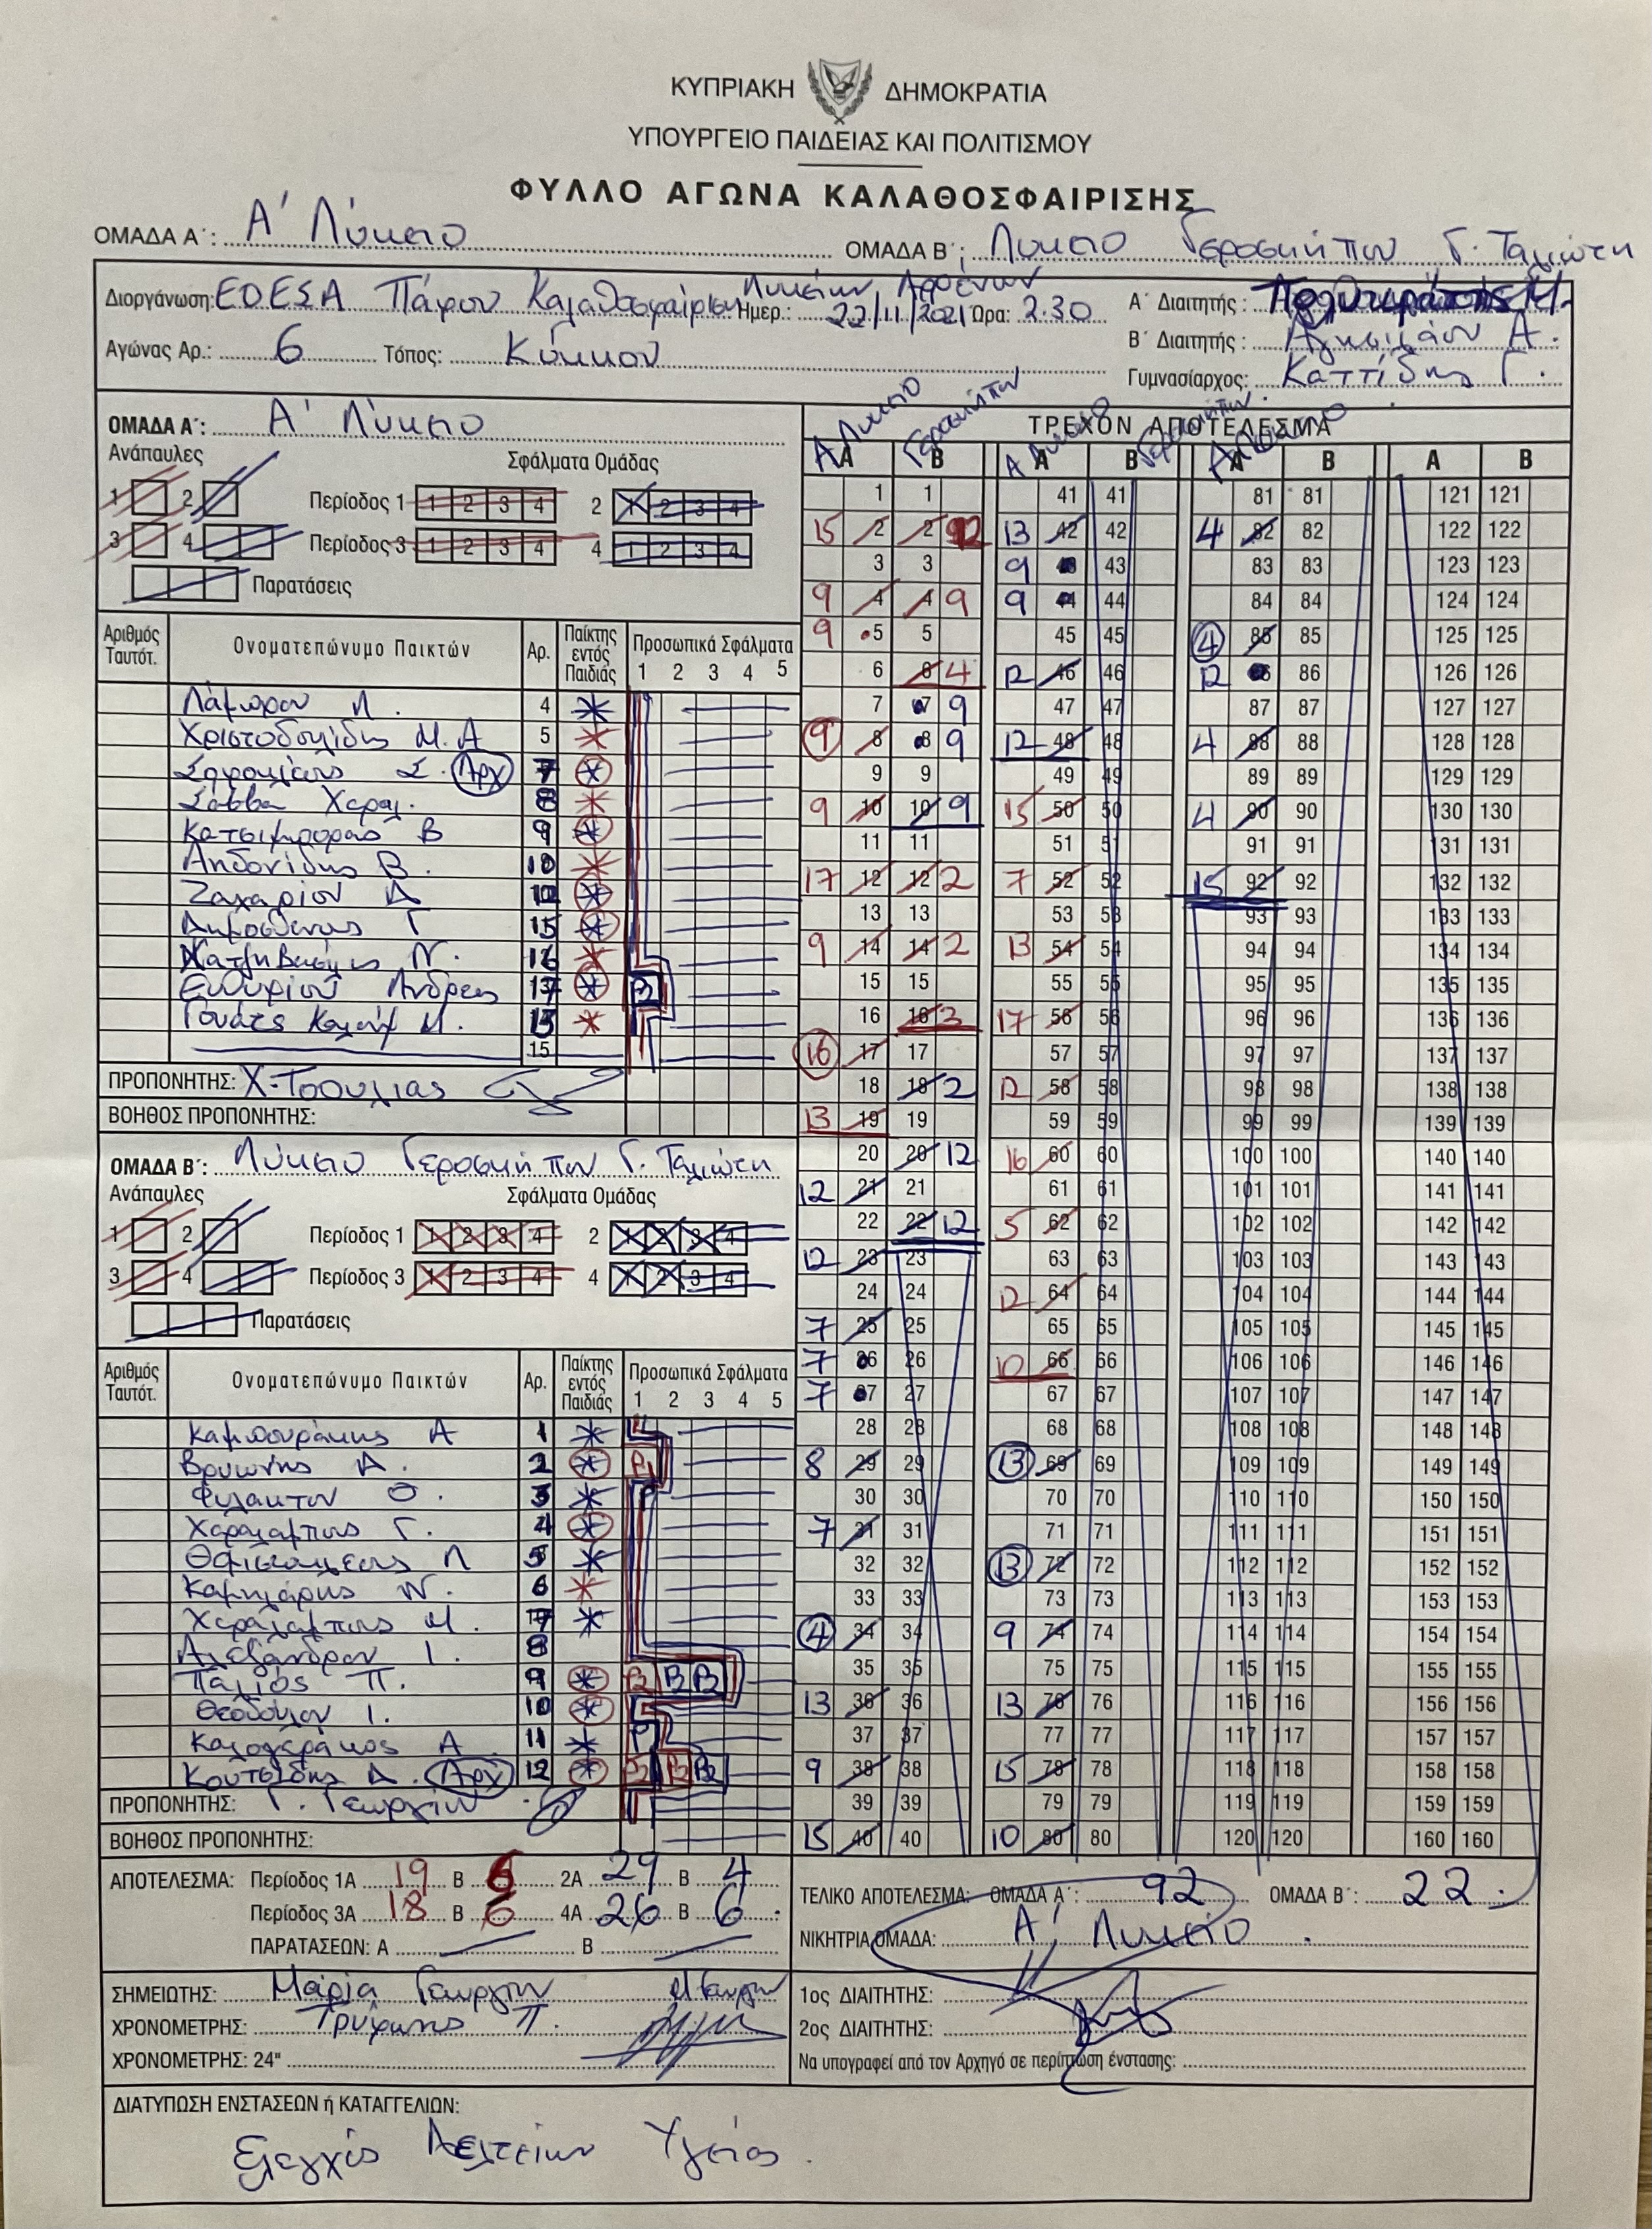 ΚΥΠΡΙΑΚΗ ΔΗΜΟΚΡΑΤΙΑ
ΥΠΟΥΡΓΕΙΟ ΠΑΙΔΕΙΑΣ ΚΑΙ ΠΟΛΙΤΙΣΜΟΥ
ΦΥΛΛΟ ΑΓΩΝΑ ΚΑΛΑΘΟΣΦΑΙΡΙΣΗΣ
ΟΜΑΔΑ Α΄: Α' Λύκειο ΟΜΑΔΑ Β΄: Λυκειο Γεροσκήπου Γ. Ταλιώτη
Διοργάνωση: Πάφου Καλαθοσφαίριση Λυκείων Αρρένων Ημερ.: 22/11/2021 Ώρα: 2.30 Α΄ Διαιτητής:
Αγώνας Αρ.: 6 Τόπος: Κύκκου Β΄ Διαιτητής: Α.
Γυμνασίαρχος: Καττίδης Γ.
ΟΜΑΔΑ Α΄: Α' Λύκειο
Ανάπαυλες Σφάλματα Ομάδας
1 2 Περίοδος 1 1 2 3 4 2 1 2 3 4
3 4 Περίοδος 3 1 2 3 4 4 1 2 3 4
Παρατάσεις
Αριθμός Ταυτότ. Ονοματεπώνυμο Παικτών Αρ. Παίκτης εντός Παιδιάς Προσωπικά Σφάλματα 1 2 3 4 5
Λάμπρου Λ. 4
Χριστοδουλίδης Μ.Α 5
Σοφοκλέους Σ. Αρχ 7
Σάββα Χαραλ. 8
Κατσιμπύρας Β 9
Αηδονίδης Β. 10
Ζαχαρίου Α 12
Δημοσθένους Γ 15
Ν. 16
Ευθυμίου Ανδρέας 17
Μ. 13
15
ΠΡΟΠΟΝΗΤΗΣ: Χ. Τσουλιας
ΒΟΗΘΟΣ ΠΡΟΠΟΝΗΤΗΣ:
ΟΜΑΔΑ Β΄: Λύκειο Γεροσκήπου Γ. Ταλιώτη
Ανάπαυλες Σφάλματα Ομάδας
1 2 Περίοδος 1 1 2 3 4 2 1 2 3 4
3 4 Περίοδος 3 1 2 3 4 4 1 2 3 4
Παρατάσεις
Αριθμός Ταυτότ. Ονοματεπώνυμο Παικτών Αρ. Παίκτης εντός Παιδιάς Προσωπικά Σφάλματα 1 2 3 4 5
Καμπουράκης Α 1
Βρυωνης Α. 2 P1
Φυλακτου Θ. 3 P
Χαραλαμπους Γ. 4
Θεμιστοκλέους Π 5
Καμηλάρης Ν. 6
Χαραλαμπους Μ. 7
Αλεξάνδρου Ι. 8
Παλιός Π. 9
Θεοδούλου Ι. 10
Καλογεράκος Α 11 P
Κουτσίδης Α. Αρχ 12
ΠΡΟΠΟΝΗΤΗΣ: Γ. Γεωργίου
ΒΟΗΘΟΣ ΠΡΟΠΟΝΗΤΗΣ:
ΤΡΕΧΟΝ ΑΠΟΤΕΛΕΣΜΑ
Α Λυκειο Γεροσκήπου Α Λυκειο Γεροσκήπου Α Λυκειο
Α Β Α Β Α Β Α Β
1 1 41 41 81 81 121 121
15 2 2 12 13 42 42 4 82 82 122 122
3 3 9 43 43 83 83 123 123
9 4 4 9 9 44 44 84 84 124 124
9 5 5 45 45 4 85 85 125 125
6 6 4 12 46 46 12 86 86 126 126
7 7 9 47 47 87 87 127 127
9 8 8 9 12 48 48 4 88 88 128 128
9 9 49 49 89 89 129 129
9 10 10 9 15 50 50 4 90 90 130 130
11 11 51 51 91 91 131 131
17 12 12 2 7 52 52 15 92 92 132 132
13 13 53 53 93 93 133 133
9 14 14 2 13 54 54 94 94 134 134
15 15 55 55 95 95 135 135
16 16 3 17 56 56 96 96 136 136
16 17 17 57 57 97 97 137 137
18 18 2 12 58 58 98 98 138 138
13 19 19 59 59 99 99 139 139
20 20 12 16 60 60 100 100 140 140
12 21 21 61 61 101 101 141 141
22 22 12 5 62 62 102 102 142 142
12 23 23 63 63 103 103 143 143
24 24 12 64 64 104 104 144 144
7 25 25 65 65 105 105 145 145
7 26 26 10 66 66 106 106 146 146
7 27 27 67 67 107 107 147 147
28 28 68 68 108 108 148 148
8 29 29 13 69 69 109 109 149 149
30 30 70 70 110 110 150 150
7 31 31 71 71 111 111 151 151
32 32 13 72 72 112 112 152 152
33 33 73 73 113 113 153 153
4 34 34 9 74 74 114 114 154 154
35 35 75 75 115 115 155 155
13 36 36 13 76 76 116 116 156 156
37 37 77 77 117 117 157 157
9 38 38 15 78 78 118 118 158 158
39 39 79 79 119 119 159 159
15 40 40 10 80 80 120 120 160 160
ΑΠΟΤΕΛΕΣΜΑ: Περίοδος 1Α 19 Β 6 2Α 29 Β 4
Περίοδος 3Α 18 Β 6 4Α 26 Β 6
ΠΑΡΑΤΑΣΕΩΝ: Α Β
ΤΕΛΙΚΟ ΑΠΟΤΕΛΕΣΜΑ: ΟΜΑΔΑ Α΄: 92 ΟΜΑΔΑ Β΄: 22
ΝΙΚΗΤΡΙΑ ΟΜΑΔΑ: Α' Λυκείο
ΣΗΜΕΙΩΤΗΣ: Μαρία Γεωργίου
ΧΡΟΝΟΜΕΤΡΗΣ: Τρύφωνος Π.
ΧΡΟΝΟΜΕΤΡΗΣ: 24"
1ος ΔΙΑΙΤΗΤΗΣ:
2ος ΔΙΑΙΤΗΤΗΣ:
Να υπογραφεί από τον Αρχηγό σε περίπτωση ένστασης:
ΔΙΑΤΥΠΩΣΗ ΕΝΣΤΑΣΕΩΝ ή ΚΑΤΑΓΓΕΛΙΩΝ:
Ελεγχος Δελτείων Υγείας.